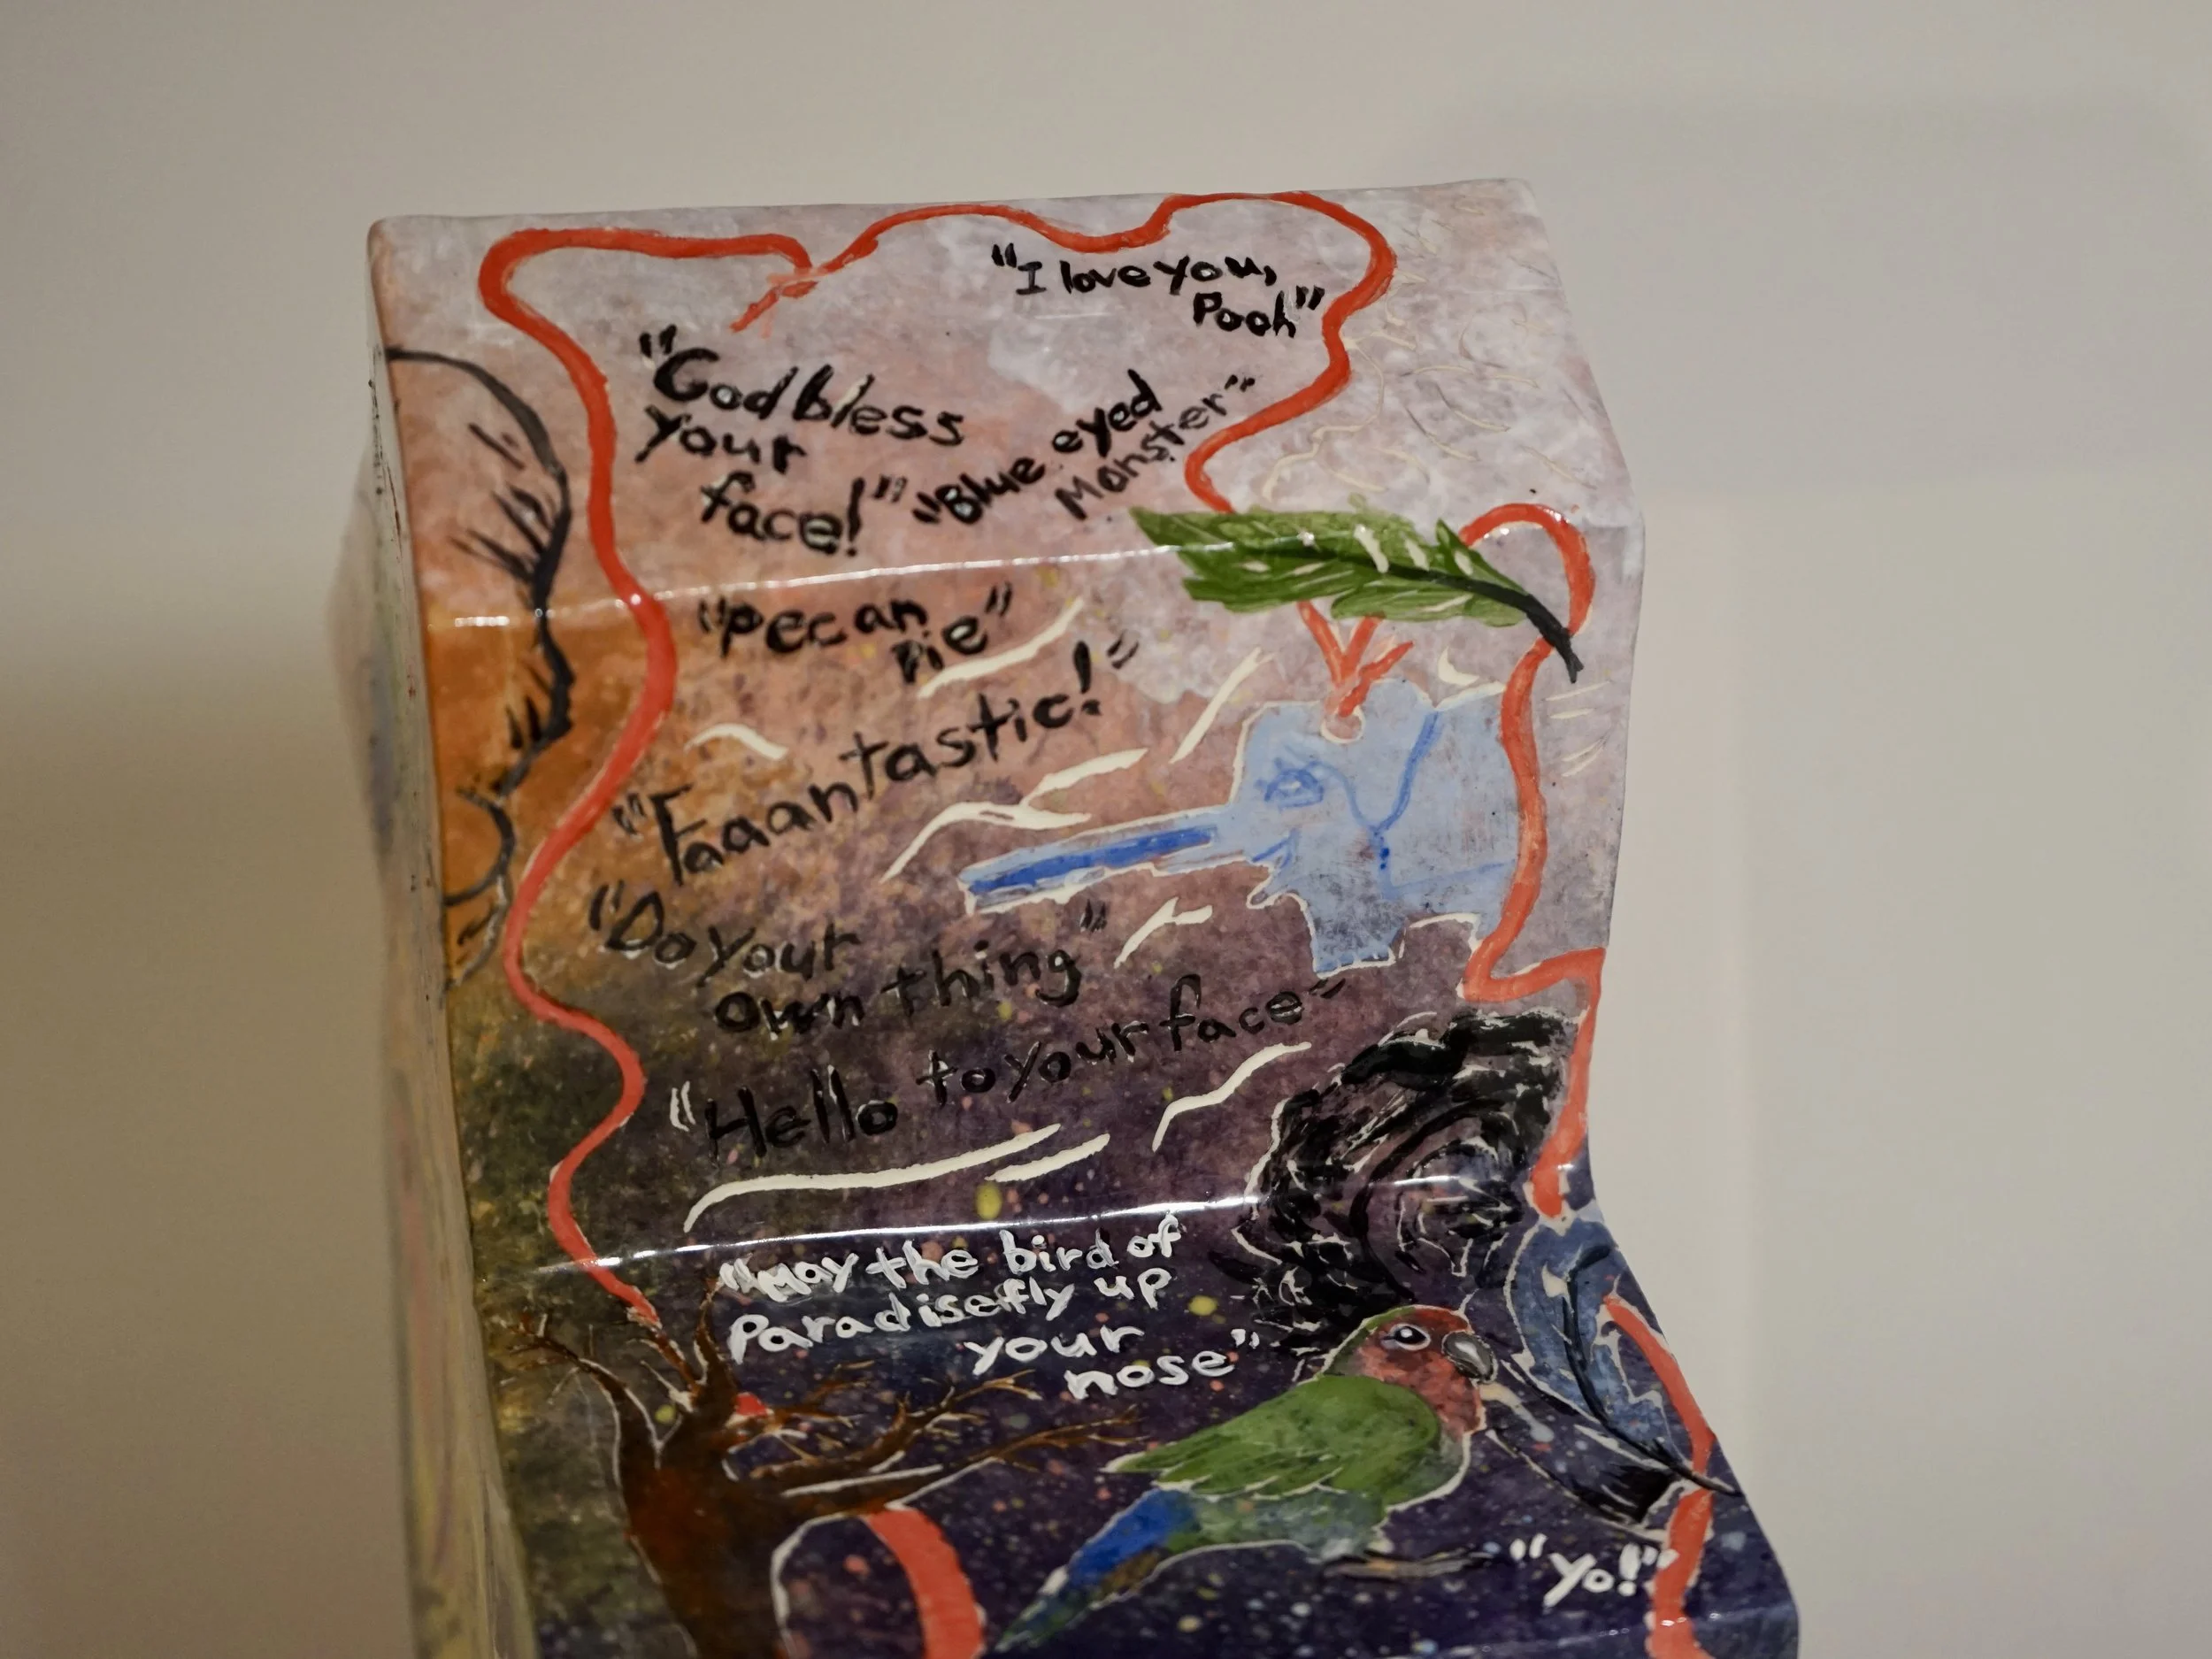 "I love you,
Pooh"
"God bless
your
face!"
"Blue eyed
Monster"
"pecan
pie"
"Faaantastic!"
"Do your
own thing"
"Hello to your face"
"May the bird of
Paradise fly up
your
nose"
"Yo!"